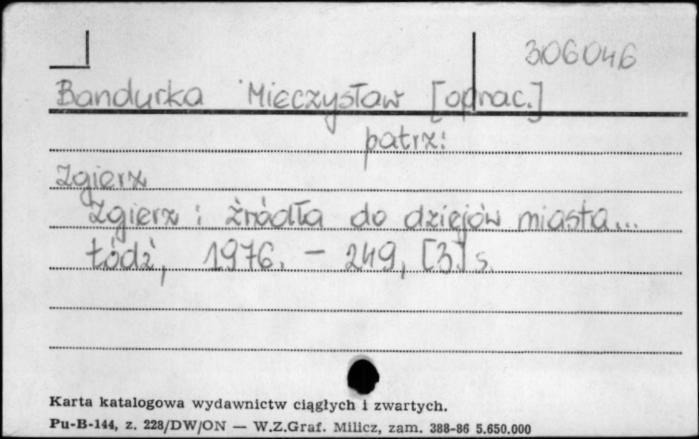 306046
Bandurka Mieczysław [oprac.]
patrz:
Zgierz
Zgierz : źródła do dziejów miasta...
Łódź, 1976. – 249, [3] s.
Karta katalogowa wydawnictw ciągłych i zwartych.
Pu-B-144, z. 228/DW/ON — W.Z.Graf. Milicz, zam. 388-86 5.650.000